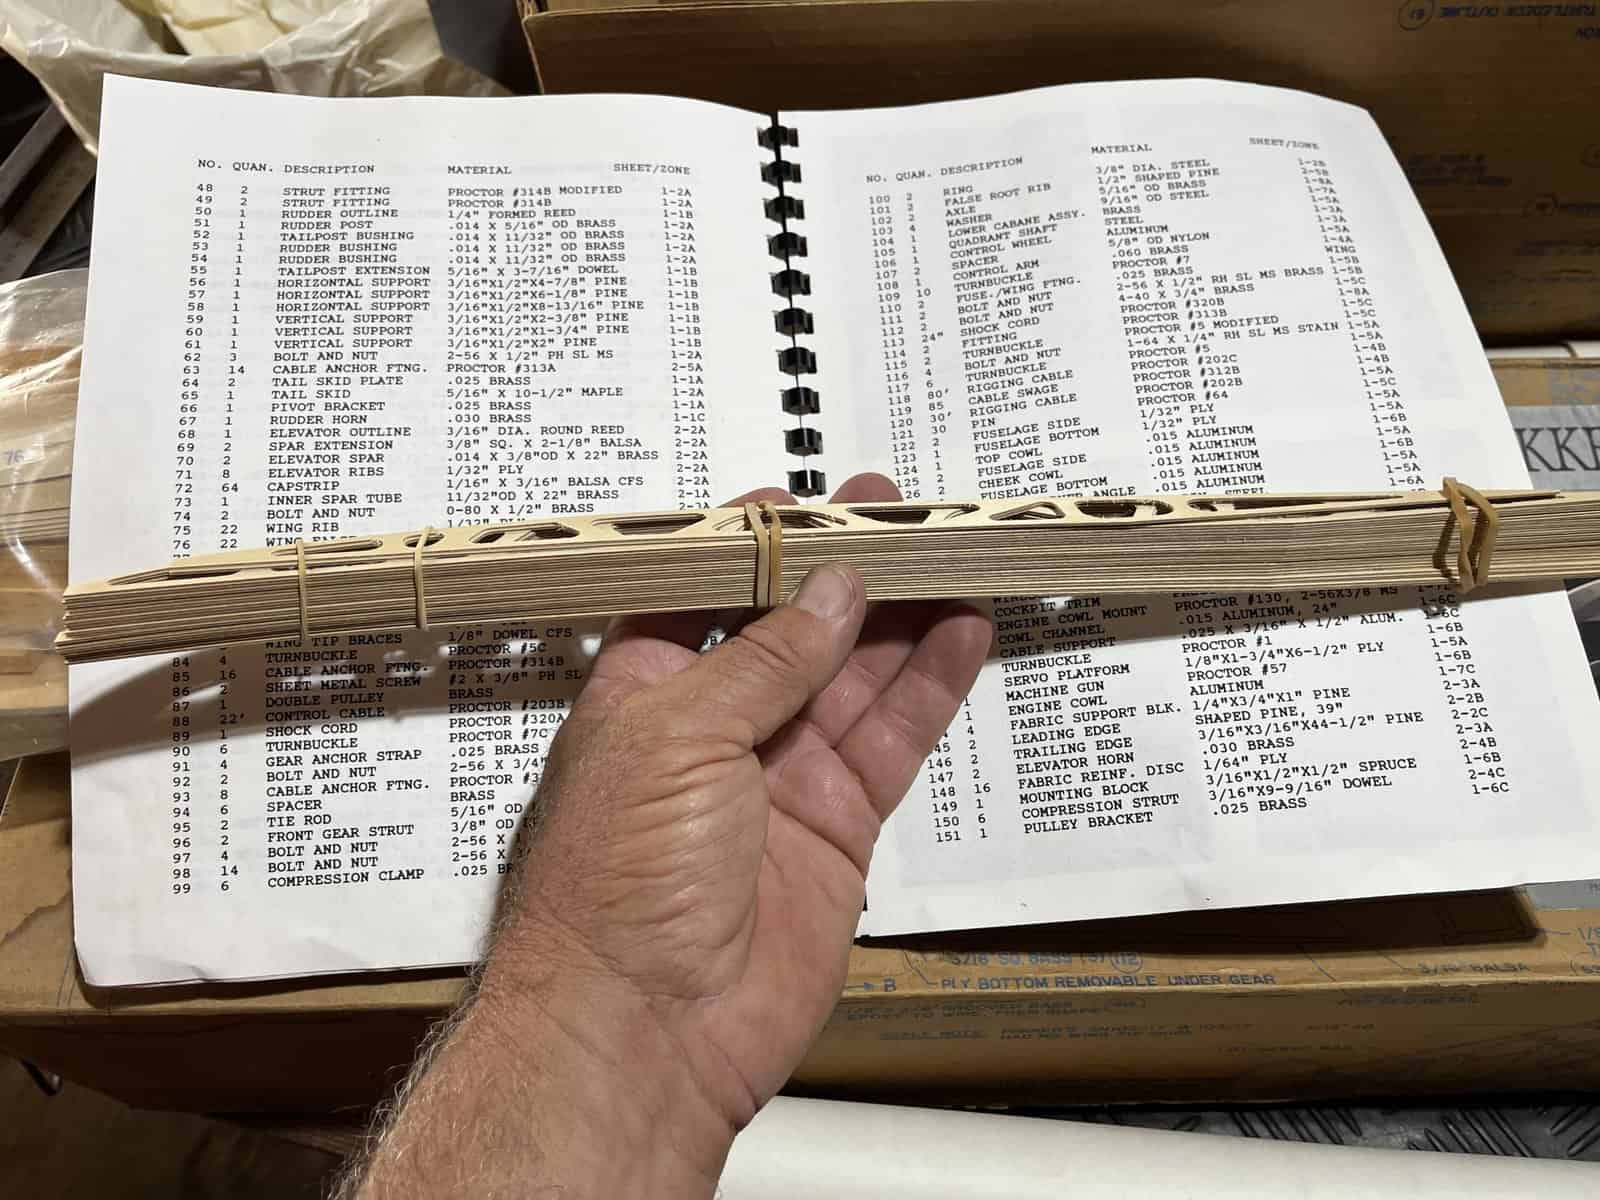 NO. QUAN. DESCRIPTION MATERIAL SHEET/ZONE
48 2 STRUT FITTING PROCTOR #314B MODIFIED 1-2A
49 2 STRUT FITTING PROCTOR #314B 1-2A
50 1 RUDDER OUTLINE 1/4" FORMED REED 1-1B
51 1 RUDDER POST .014 X 5/16" OD BRASS 1-2A
52 1 TAILPOST BUSHING .014 X 11/32" OD BRASS 1-2A
53 1 RUDDER BUSHING .014 X 11/32" OD BRASS 1-2A
54 1 RUDDER BUSHING .014 X 11/32" OD BRASS 1-2A
55 1 TAILPOST EXTENSION 5/16" X 3-7/16" DOWEL 1-1B
56 1 HORIZONTAL SUPPORT 3/16"X1/2"X4-7/8" PINE 1-1B
57 1 HORIZONTAL SUPPORT 3/16"X1/2"X6-1/8" PINE 1-1B
58 1 HORIZONTAL SUPPORT 3/16"X1/2"X8-13/16" PINE 1-1B
59 1 VERTICAL SUPPORT 3/16"X1/2"X2-3/8" PINE 1-1B
60 1 VERTICAL SUPPORT 3/16"X1/2"X1-3/4" PINE 1-1B
61 1 VERTICAL SUPPORT 3/16"X1/2"X2" PINE 1-1B
62 3 BOLT AND NUT 2-56 X 1/2" PH SL MS 1-2A
63 14 CABLE ANCHOR FTNG. PROCTOR #313A 2-5A
64 2 TAIL SKID PLATE .025 BRASS 1-1A
65 1 TAIL SKID 5/16" X 10-1/2" MAPLE 1-2A
66 1 PIVOT BRACKET .025 BRASS 1-1A
67 1 RUDDER HORN .030 BRASS 1-1C
68 1 ELEVATOR OUTLINE 3/16" DIA. ROUND REED 2-2A
69 2 SPAR EXTENSION 3/8" SQ. X 2-1/8" BALSA 2-2A
70 2 ELEVATOR SPAR .014 X 3/8"OD X 22" BRASS 2-2A
71 8 ELEVATOR RIBS 1/32" PLY 2-2A
72 64 CAPSTRIP 1/16" X 3/16" BALSA CFS 2-2A
73 1 INNER SPAR TUBE 11/32"OD X 22" BRASS 2-1A
74 2 BOLT AND NUT 0-80 X 1/2" BRASS 2-3A
75 22 WING RIB 1/32" PLY
76 22 WING
WING TIP BRACES 1/8" DOWEL CFS
84 4 TURNBUCKLE PROCTOR #5C
85 16 CABLE ANCHOR FTNG. PROCTOR #314B
86 2 SHEET METAL SCREW #2 X 3/8" PH SL
87 1 DOUBLE PULLEY BRASS
88 22' CONTROL CABLE PROCTOR #203B
89 1 SHOCK CORD PROCTOR #320A
90 6 TURNBUCKLE PROCTOR #7C
91 4 GEAR ANCHOR STRAP .025 BRASS
92 2 BOLT AND NUT 2-56 X 3/4"
93 8 CABLE ANCHOR FTNG. PROCTOR
94 6 SPACER BRASS
95 2 TIE ROD 5/16" OD
96 2 FRONT GEAR STRUT 3/8" OD
97 4 BOLT AND NUT 2-56 X
98 14 BOLT AND NUT 2-56 X
99 6 COMPRESSION CLAMP .025
NO. QUAN. DESCRIPTION MATERIAL SHEET/ZONE
100 2 RING 3/8" DIA. STEEL 1-2B
101 2 FALSE ROOT RIB 1/2" SHAPED PINE 2-5B
102 2 AXLE 5/16" OD BRASS 1-8A
103 4 WASHER 9/16" OD STEEL 1-7A
104 1 LOWER CABANE ASSY. BRASS 1-5A
105 1 QUADRANT SHAFT STEEL 1-3A
106 1 CONTROL WHEEL ALUMINUM 1-3A
107 2 SPACER 5/8" OD NYLON 1-5A
108 1 CONTROL ARM .060 BRASS 1-4A
109 10 TURNBUCKLE PROCTOR #7 WING
110 2 FUSE./WING FTNG. .025 BRASS 1-5B
111 2 BOLT AND NUT 2-56 X 1/2" RH SL MS BRASS 1-5B
112 2 BOLT AND NUT 4-40 X 3/4" BRASS 1-5C
113 24" SHOCK CORD PROCTOR #320B 1-8A
114 2 FITTING PROCTOR #313B 1-5C
115 2 TURNBUCKLE PROCTOR #5 MODIFIED 1-5C
116 4 BOLT AND NUT 1-64 X 1/4" RH SL MS STAIN 1-5A
117 6 TURNBUCKLE PROCTOR #5 1-4B
118 80' RIGGING CABLE PROCTOR #202C 1-4B
119 85 CABLE SWAGE PROCTOR #312B 1-5A
120 30' RIGGING CABLE PROCTOR #202B 1-5C
121 30 PIN PROCTOR #64 1-5A
122 2 FUSELAGE SIDE 1/32" PLY 1-6B
123 1 FUSELAGE BOTTOM 1/32" PLY 1-5A
124 1 TOP COWL .015 ALUMINUM 1-6B
125 2 FUSELAGE SIDE .015 ALUMINUM 1-5A
26 2 CHEEK COWL .015 ALUMINUM 1-5A
FUSELAGE BOTTOM .015 ALUMINUM 1-6A
ANGLE
COCKPIT TRIM PROCTOR #130, 2-56X3/8 MS
ENGINE COWL MOUNT .015 ALUMINUM, 24" 1-6C
COWL CHANNEL .025 X 3/16" X 1/2" ALUM. 1-6C
CABLE SUPPORT PROCTOR #1 1-6B
TURNBUCKLE 1/8"X1-3/4"X6-1/2" PLY 1-5A
SERVO PLATFORM PROCTOR #57 1-6B
MACHINE GUN ALUMINUM 1-7C
1 ENGINE COWL 1/4"X3/4"X1" PINE 2-3A
4 FABRIC SUPPORT BLK. SHAPED PINE, 39" 2-2B
45 2 LEADING EDGE 3/16"X3/16"X44-1/2" PINE 2-2C
146 2 TRAILING EDGE .030 BRASS 2-3A
147 2 ELEVATOR HORN 1/64" PLY 2-4B
148 16 FABRIC REINF. DISC 3/16"X1/2"X1/2" SPRUCE 1-6B
149 1 MOUNTING BLOCK 3/16"X9-9/16" DOWEL 2-4C
150 6 COMPRESSION STRUT .025 BRASS 1-6C
151 1 PULLEY BRACKET
B PLY BOTTOM REMOVABLE UNDER GEAR